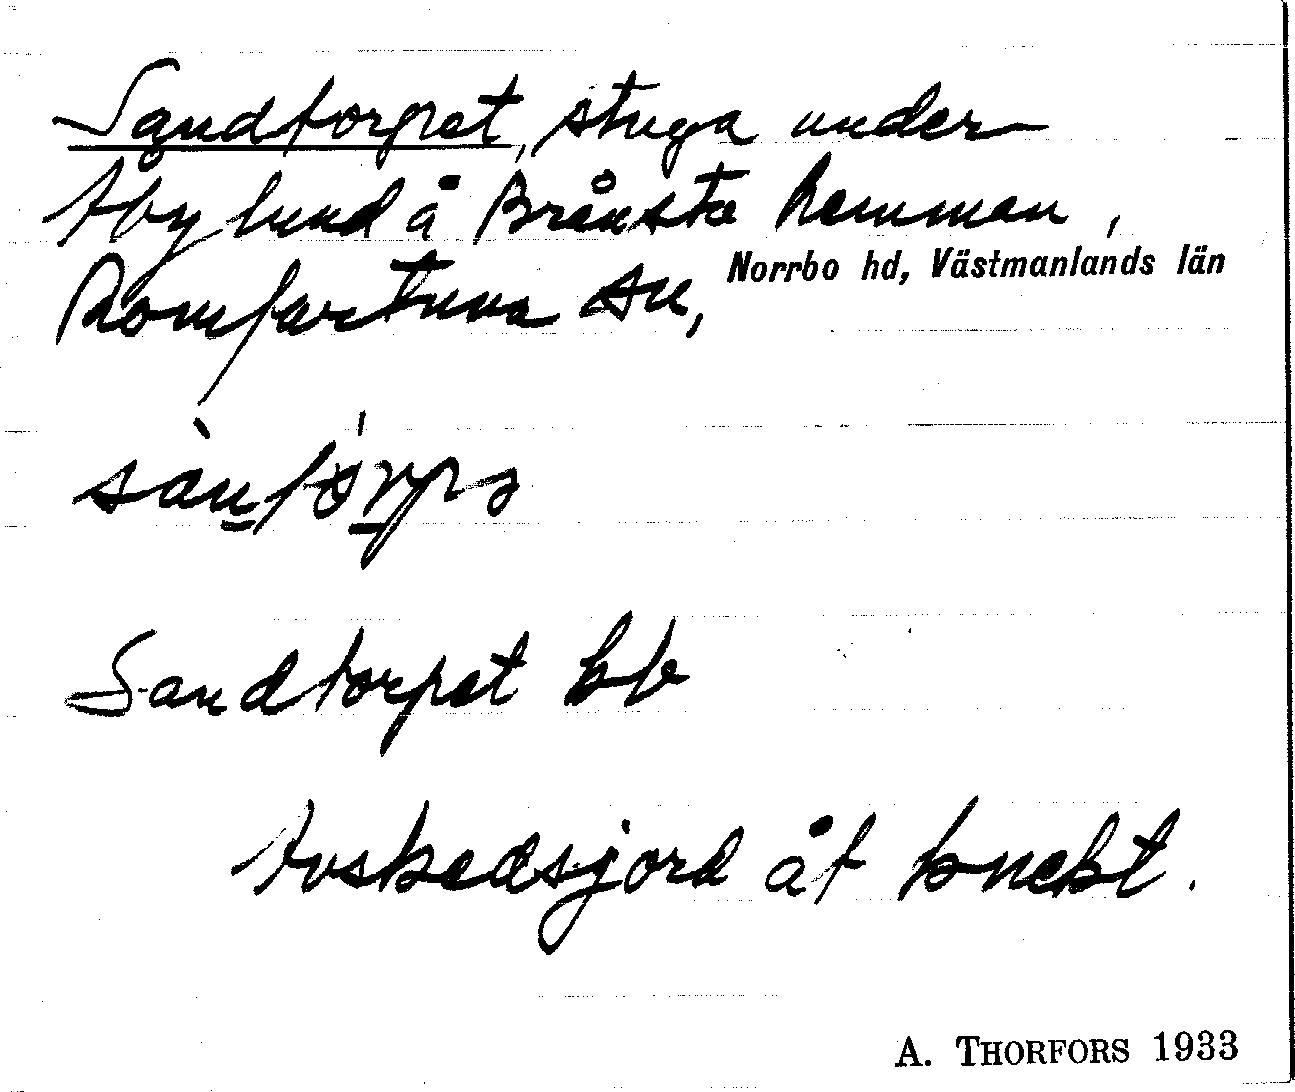 Sandtorpet, stuga under
Åbylund å Brånsta hemman,
Romfartuna sn, Norrbo hd, Västmanlands län
Sandtorpet kb
Avskedsjord åt knekt.
A. THORFORS 1933